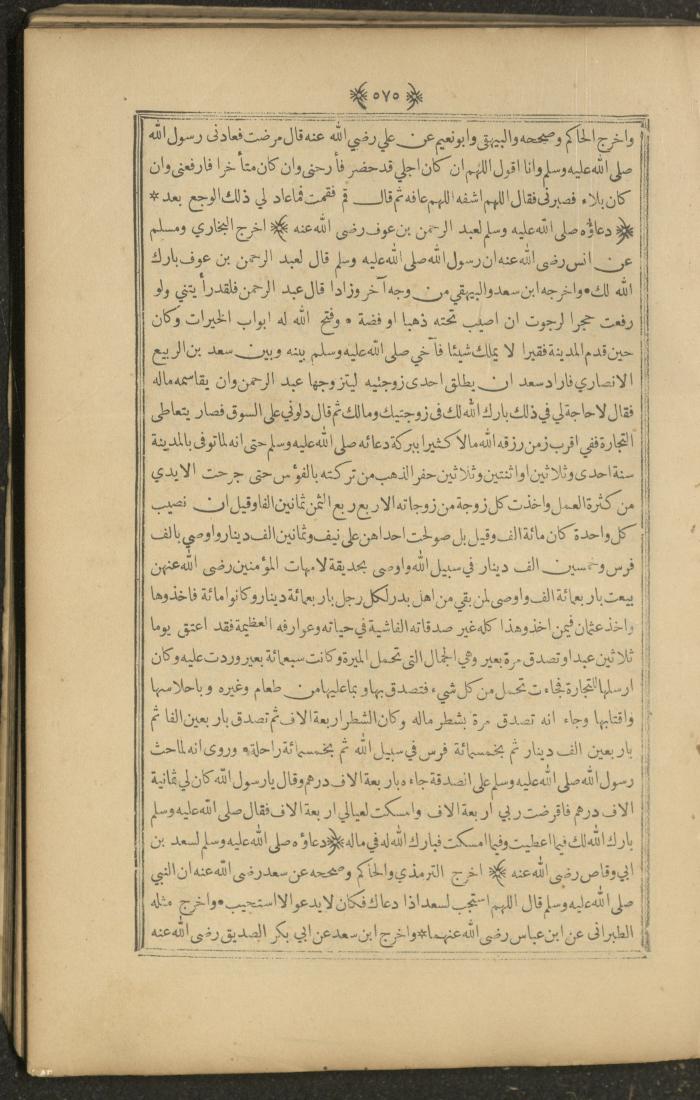 ﴿ ٥٧٥ ﴾
واخرج الحاكم وصححه والبيهقى وابونعيم عن علي رضي الله عنه قال مرضت فعادنى رسول الله
صلى الله عليه وسلم وانا اقول اللهم ان كان اجلي قد حضر فأرحنى وان كان متأخرا فارفعنى وان
كان بلاء فصبرنى فقال اللهم اشفه اللهم عافه ثم قال قم فقمت فما عاد لي ذلك الوجع بعد *
﴿ دعاؤه صلى الله عليه وسلم لعبد الرحمن بن عوف رضى الله عنه ﴾ اخرج البخاري ومسلم
عن انس رضى الله عنه ان رسول الله صلى الله عليه وسلم قال لعبد الرحمن بن عوف بارك
الله لك * واخرجه ابن سعد والبيهقي من وجه آخر وزادا قال عبد الرحمن فلقد رأيتني ولو
رفعت حجرا لرجوت ان اصيب تحته ذهبا او فضة * وفتح الله له ابواب الخيرات وكان
حين قدم المدينة فقيرا لا يملك شيئا فآخي صلى الله عليه وسلم بينه وبين سعد بن الربيع
الانصاري فاراد سعد ان يطلق احدى زوجتيه ليتزوجها عبد الرحمن وان يقاسمه ماله
فقال لا حاجة لي في ذلك بارك الله لك فى زوجتيك ومالك ثم قال دلوني على السوق فصار يتعاطى
التجارة ففي اقرب زمن رزقه الله مالا كثيرا ببركة دعائه صلى الله عليه وسلم حتى انه لما توفى بالمدينة
سنة احدى وثلاثين او اثنتين وثلاثين حفر الذهب من تركته بالفؤس حتى جرحت الايدي
من كثرة العمل واخذت كل زوجة من زوجاته الاربع ربع الثمن ثمانين الفا وقيل ان نصيب
كل واحدة كان مائة الف وقيل بل صولحت احداهن على نيف وثمانين الف دينار واوصي بالف
فرس وخمسين الف دينار في سبيل الله واوصى بحديقة لامهات المؤمنين رضى الله عنهن
بيعت باربعمائة الف واوصى لمن بقي من اهل بدر لكل رجل باربعمائة دينار وكانوا مائة فاخذوها
واخذ عثمان فيمن اخذ وهذا كله غير صدقاته الفاشية في حياته وعوارفه العظيمة فقد اعتق يوما
ثلاثين عبدا وتصدق مرة بعير وهي الجمال التى تحمل الميرة وكانت سبعمائة بعير وردت عليه وكان
ارسلها للتجارة فجاءت تحمل من كل شيء فتصدق بها وبما عليها من طعام وغيره وباحلاسها
واقتابها وجاء انه تصدق مرة بشطر ماله وكان الشطر اربعة الاف ثم تصدق باربعين الفا ثم
باربعين الف دينار ثم بخمسمائة فرس في سبيل الله ثم بخمسمائة راحلة * وروى انه لما حث
رسول الله صلى الله عليه وسلم على الصدقة جاءه باربعة الاف درهم وقال يا رسول الله كان لي ثمانية
الاف درهم فاقرضت ربي اربعة الاف وامسكت لعيالي اربعة الاف فقال صلى الله عليه وسلم
بارك الله لك فيما اعطيت وفيما امسكت فبارك الله له في ماله ﴿ دعاؤه صلى الله عليه وسلم لسعد بن
ابي وقاص رضى الله عنه ﴾ اخرج الترمذي والحاكم وصححه عن سعد رضى الله عنه ان النبي
صلى الله عليه وسلم قال اللهم استجب لسعد اذا دعاك فكان لا يدعو الا استجيب * واخرج مثله
الطبرانى عن ابن عباس رضى الله عنهما * واخرج ابن سعد عن ابي بكر الصديق رضى الله عنه